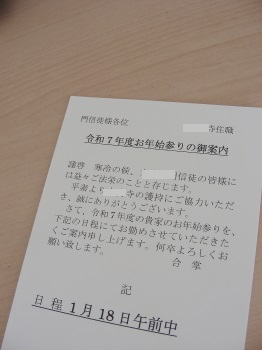 門信徒様各位
寺住職
令和7年度お年始参りの御案内
謹啓 寒冷の候、 信徒の皆様に
は益々ご法栄のことと存じます。
平素より 寺の護持にご協力いただ
き、誠にありがとうございます。
さて、令和7年度の貴家のお年始参りを、
下記の日程にてお勤めさせていただきた
くご案内申し上げます。何卒よろしくお
願い致します。
合 掌
記
日 程 1月18日午前中